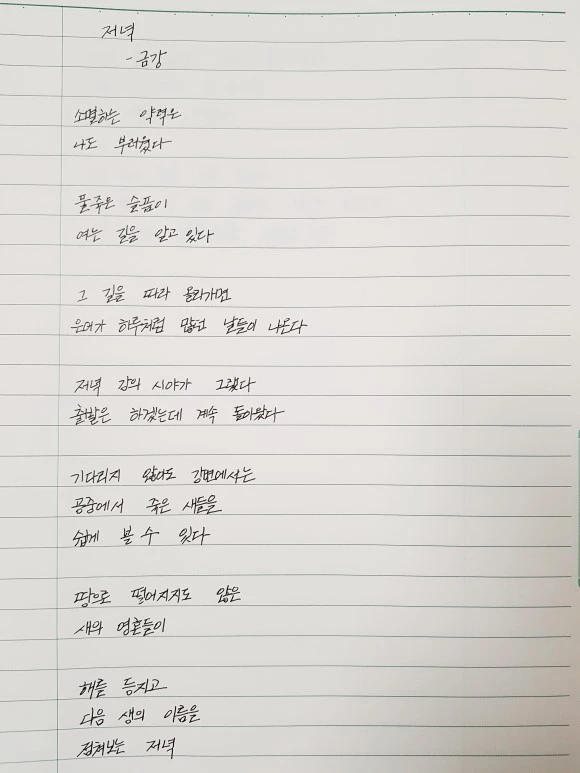 저녁
- 금강
소멸하는 약력은
나도 부러웠다
풀죽은 슬픔이
여는 길을 알고 있다
그 길을 따라 올라가면
은어가 하루처럼 많던 날들이 나온다
저녁 강의 시야가 그랬다
출발은 하겠는데 계속 돌아왔다
기다리지 않아도 강변에서는
공중에서 죽은 새들을
쉽게 볼 수 있다
땅으로 떨어지지도 않은
새의 영혼들이
해를 등지고
다음 생의 이름을
점쳐보는 저녁